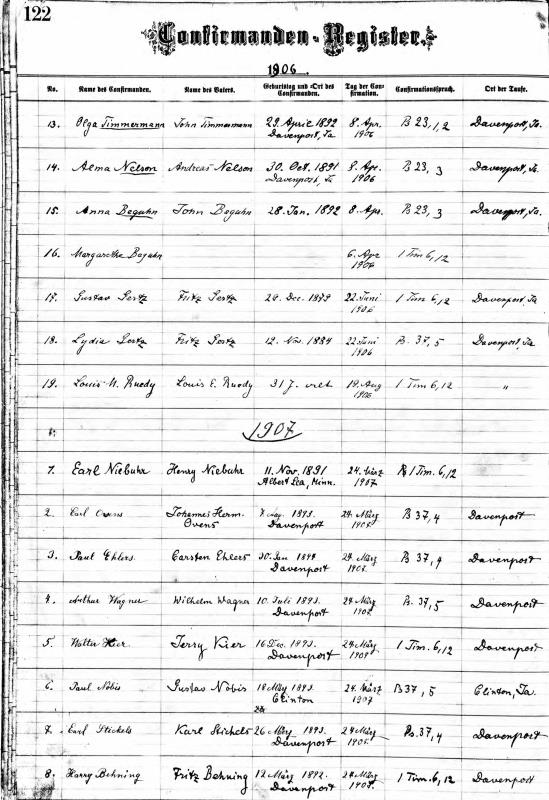 122
Confirmanden-Register.
1906.
No. Name des Confirmanden. Name des Vaters. Geburtstag und -Ort des Confirmanden. Tag der Confirmation. Confirmationsspruch. Ort der Taufe.
13. Olga Timmermann John Timmermann 29. April 1892 8. Apr. B 23, 1, 2 Davenport, Ia.
Davenport, Ia 1906
14. Alma Nelson Andreas Nelson 30. Oct. 1891 8. Apr. B 23, 3 Davenport, Ia.
Davenport, Ia 1906
15. Anna Beguhn John Beguhn 28. Jan. 1892 8. Apr. B 23, 3 Davenport, Ia.
16. Margarethe Beguhn 6. Apr 1 Tim 6, 12
1906
17. Gustav Fritz Dec. 22. Juni 1 Tim 6, 12 Davenport, Ia
1906
18. Lydia Fritz 12. Nov. 1884 22. Juni Ps. 37, 5 Davenport, Ia
1906
19. Louis Ruedy Louis E. Ruedy 31 J. 19. Aug 1 Tim 6, 12 "
1906
1907
1. Earl Niebuhr Henry Niebuhr 11. Nov. 1891 24. März 1 Tim. 6, 12
Albert Lea, Minn. 1907
2. Carl Ovens Johannes Herm. 1893. 24. März B 37, 4 Davenport
Ovens Davenport 1907.
3. Paul Ehlers Carsten Ehlers 30. Jan 24. März B 37, 4 Davenport
Davenport 1907.
4. Arthur Wagner Wilhelm Wagner 10. Juli 1893. 24. März B. 37, 5 Davenport
Davenport 1907
5. Walter Kier Jerry Kier 16 Dec. 1893. 24. März 1 Tim. 6, 12 Davenport
Davenport 1907
6. Paul Nobis Gustav Nobis 18 1893. 24. März B 37, 5 Clinton, Ia.
Clinton 1907
7. Earl Stichels Karl Stichels 26 März 1893. 24. März Ps. 37, 4 Davenport
Davenport 1907.
8. Harry Behning Fritz Behning 12 März 1892. 24. März 1 Tim. 6, 12 Davenport
Davenport 1907.